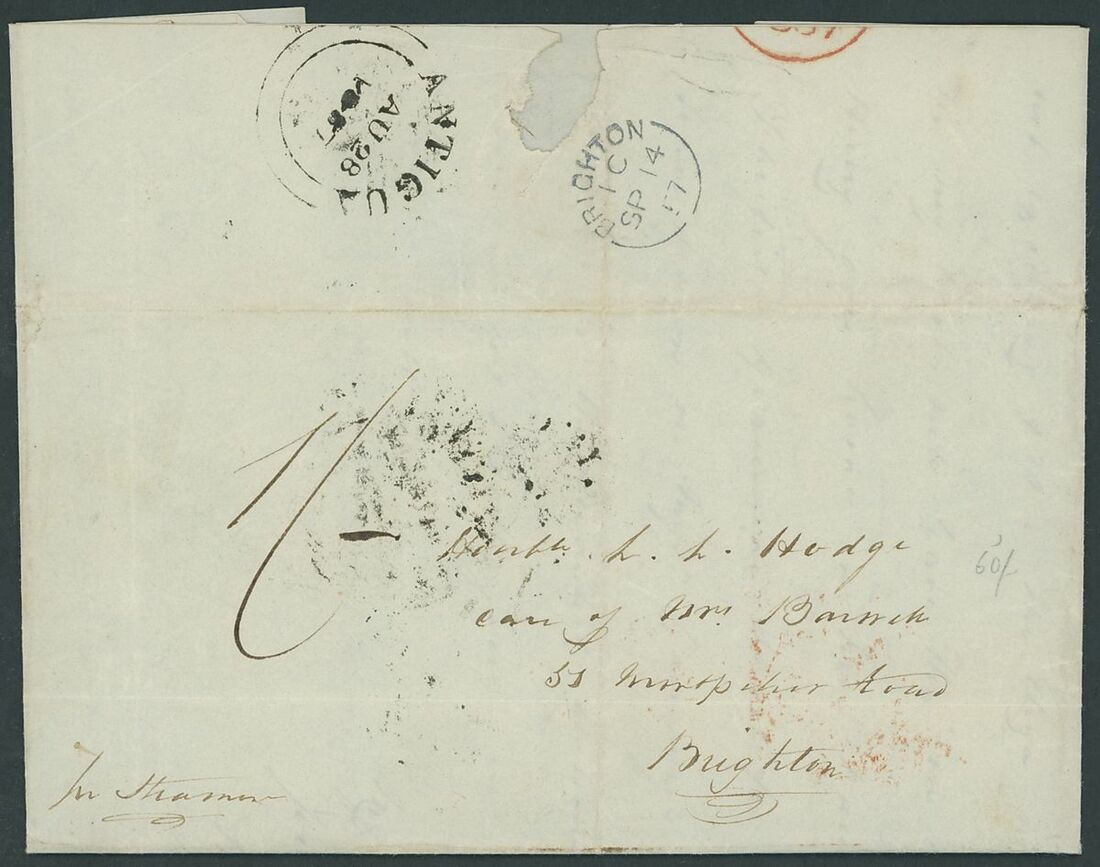 ANTIGU
AU 28
BRIGHTON
1 C
SP 14
57
1/-
Honble. L. L. Hodge
care of Mrs Barwell
51 Montpelier Road
Brighton
60/-
Per Steamer